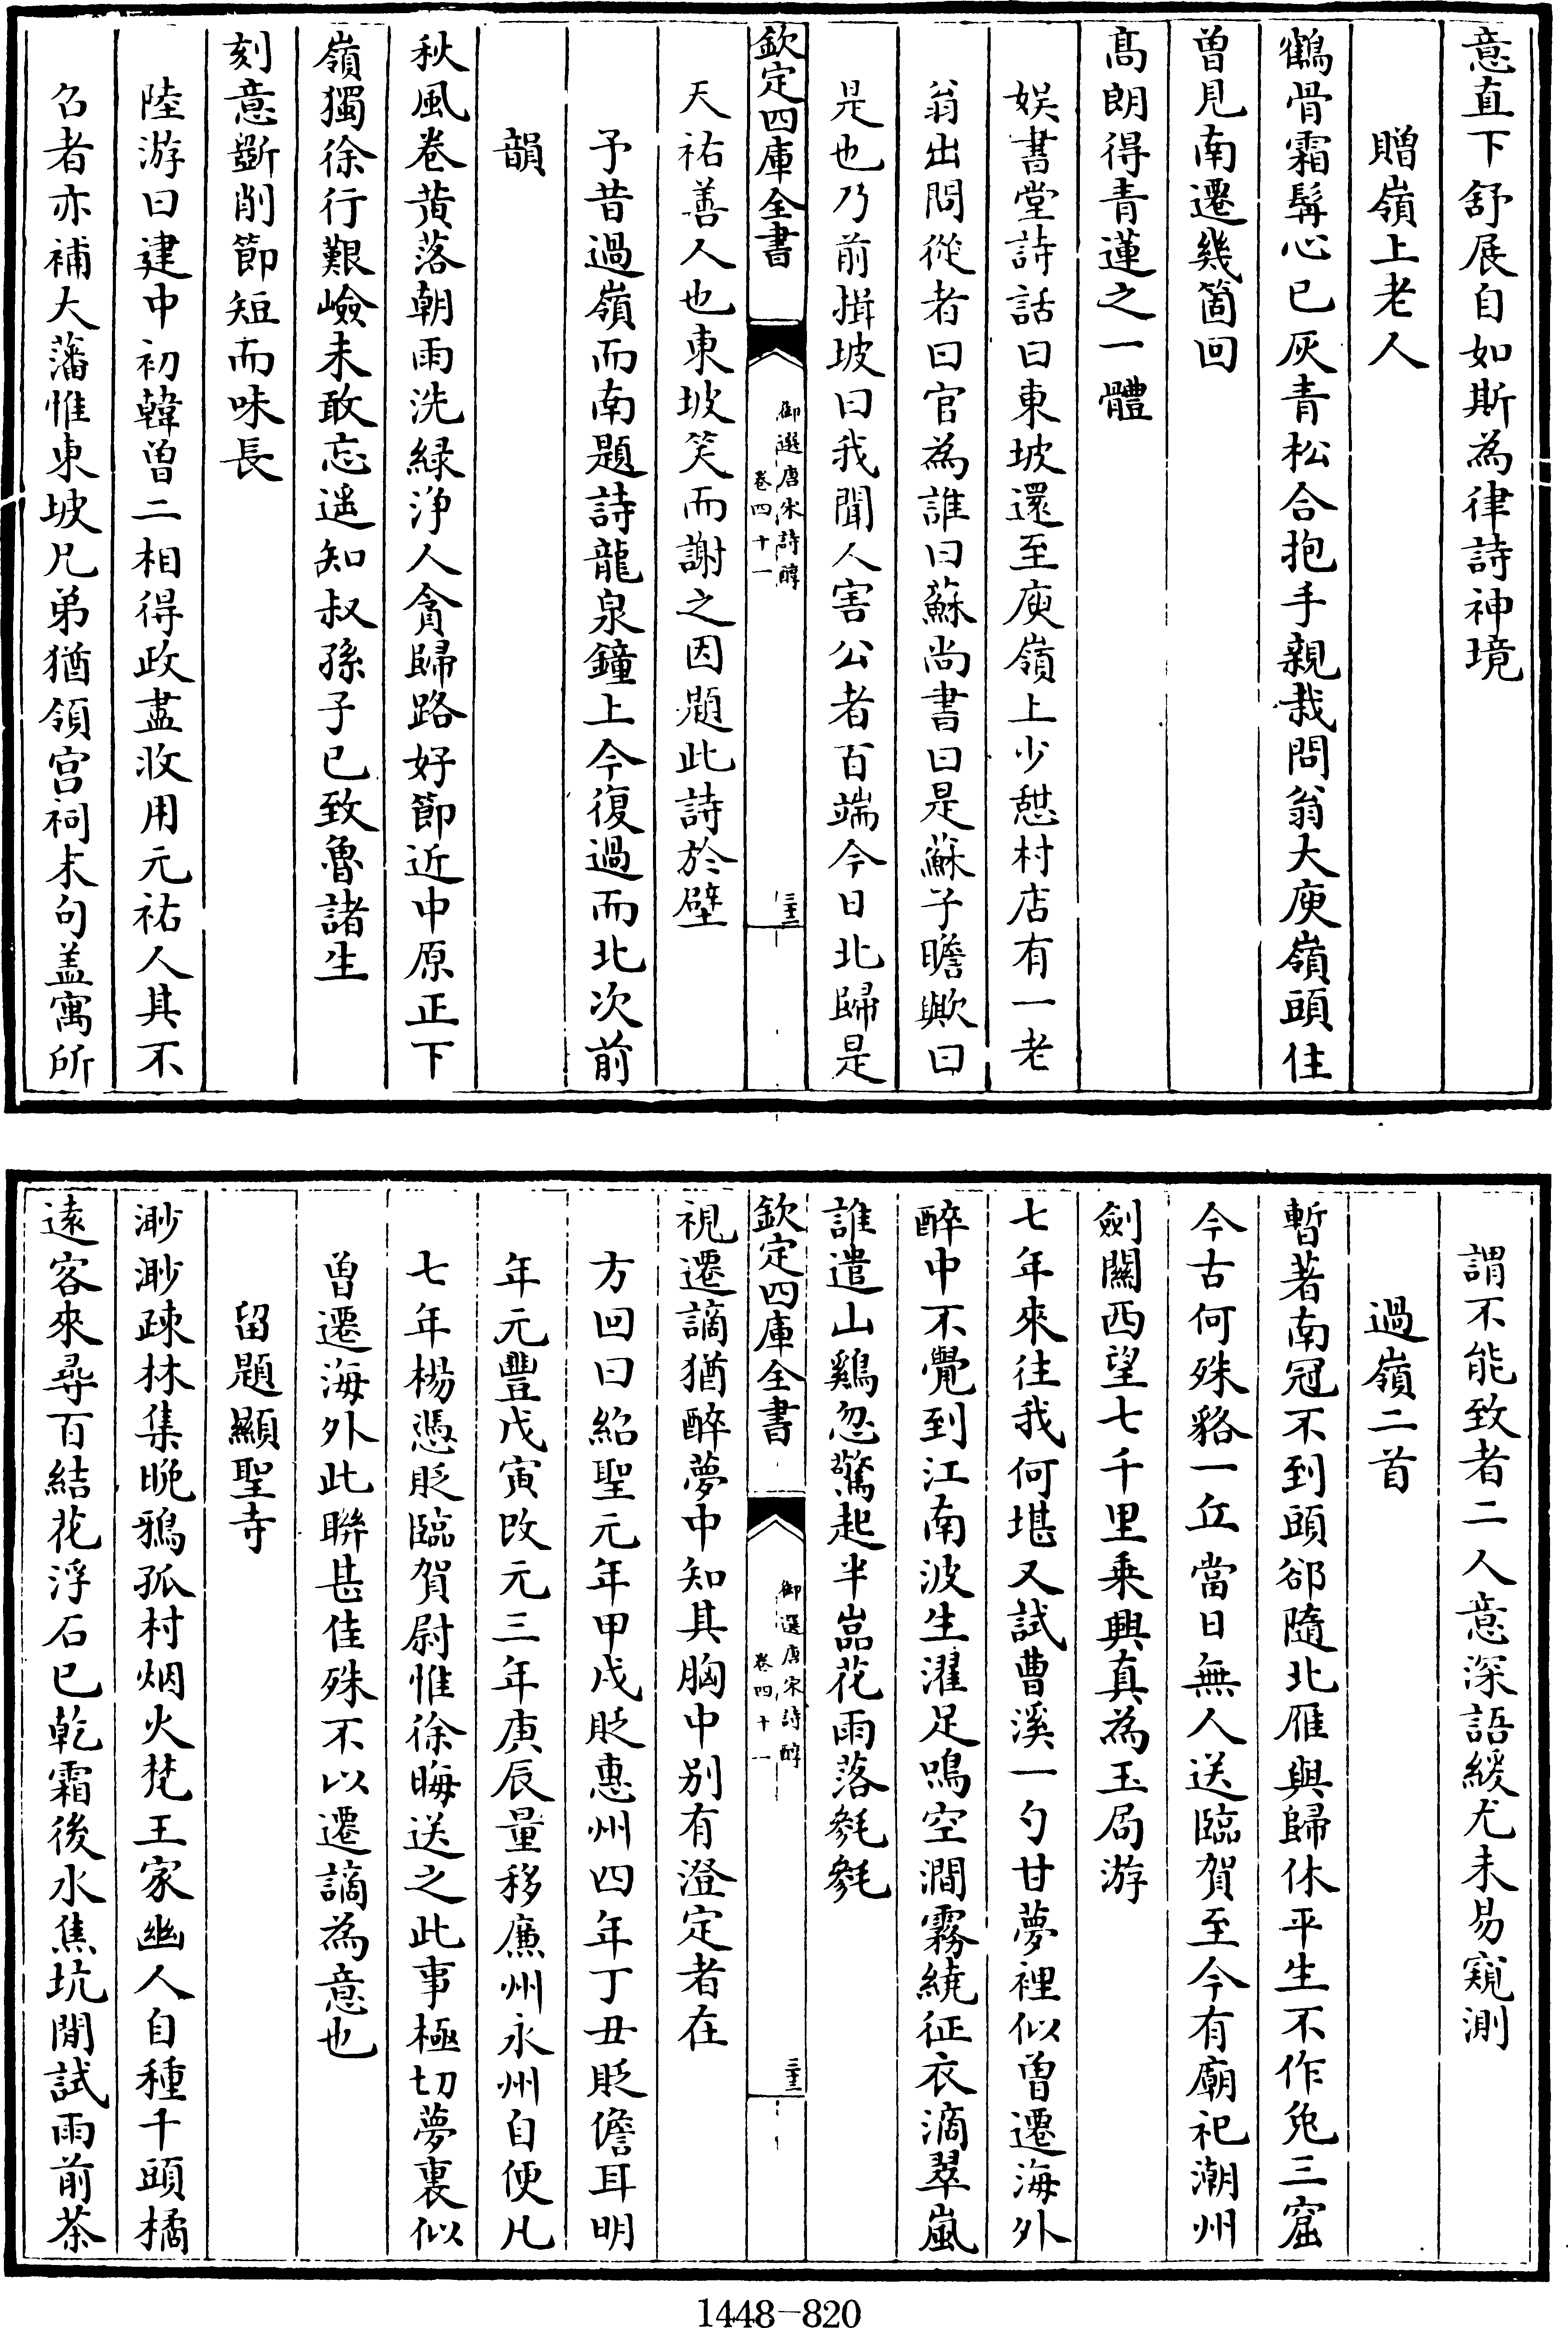 意直下舒展自如斯為律詩神境
贈嶺上老人
鶴骨霜髯心已灰青松合抱手親栽問翁大庾嶺頭住
曾見南遷幾箇回
高朗得青蓮之一體
娛書堂詩話曰東坡還至庾嶺上少憩村店有一老
翁出問從者曰官為誰曰蘇尚書曰是蘇子瞻歟曰
是也乃前揖坡曰我聞人害公者百端今日北歸是
欽定四庫全書
御選唐宋詩醇
卷四十一
三十三
天祐善人也東坡笑而謝之因題此詩於壁
予昔過嶺而南題詩龍泉鐘上今復過而北次前
韻
秋風卷黃落朝雨洗綠淨人貪歸路好節近中原正下
嶺獨徐行艱嶮未敢忘遥知叔孫子已致魯諸生
刻意斵削節短而味長
陸游曰建中初韓曾二相得政盡收用元祐人其不
召者亦補大藩惟東坡兄弟猶領宮祠末句盖寓所
謂不能致者二人意深語緩尤未易窺測
過嶺二首
暫著南冠不到頭郤隨北雁與歸休平生不作兔三窟
今古何殊貉一丘當日無人送臨賀至今有廟祀潮州
劍關西望七千里乘興真為玉局游
七年來往我何堪又試曹溪一勺甘夢裡似曾遷海外
醉中不覺到江南波生濯足鳴空澗霧繞征衣滴翠嵐
誰遣山鷄忽驚起半嵓花雨落毿毿
欽定四庫全書
御選唐宋詩醇
卷四十一
三十三
視遷謫猶醉夢中知其胸中别有澄定者在
方回曰紹聖元年甲戌貶惠州四年丁丑貶儋耳明
年元豐戊寅改元三年庚辰量移廉州永州自便凡
七年楊憑貶臨賀尉惟徐晦送之此事極切夢裏似
曾遷海外此聨甚佳殊不以遷謫為意也
留題顯聖寺
渺渺疎林集晚鴉孤村烟火梵王家幽人自種千頭橘
遠客來尋百結花浮石已乾霜後水焦坑閒試雨前茶
1448-820